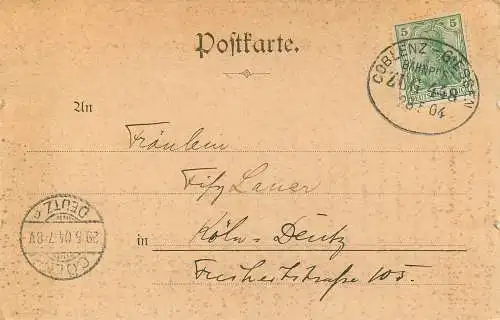 Postkarte.
5 5
COBLENZ - GIESSEN
BAHNPOST
ZUG 448
28 5 04
An
Fräulein
Fify Lauer
in Köln-Deutz
Freiheitstraße 105.
CÖLN
DEUTZ
29.5.04.7-8V.